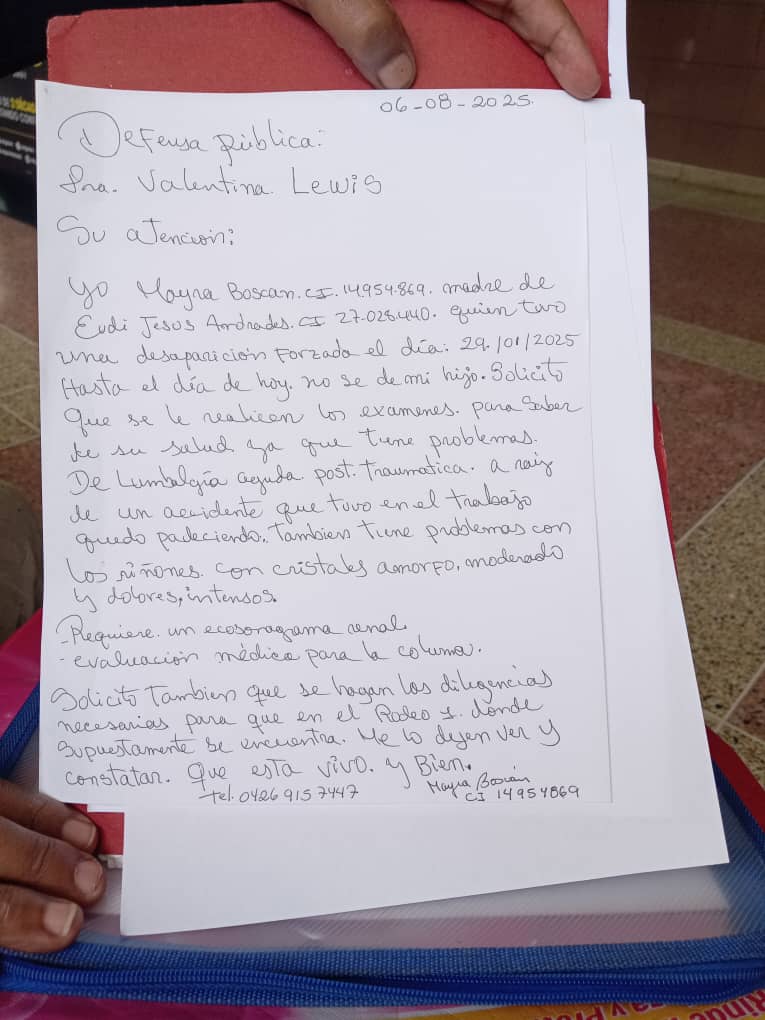 06-08-2025.
Defensa pública:
Sra. Valentina Lewis
Su atencion:
Yo Mayra Boscan. CI. 14.954.869. madre de
Eudi Jesus Andrades. CI 27.028.440. quien tuvo
una desaparición Forzada el día: 29/01/2025
Hasta el día de hoy. no se de mi hijo. Solicito
que se le realicen los examenes. para Saber
de su salud ya que tiene problemas.
De Lumbalgía aguda. post. Traumatica. a raiz
de un accidente que tuvo en el trabajo
quedo padeciendo. Tambien tiene problemas con
los riñones. con cristales amorfo, moderado
y dolores, intensos.
-Requiere. un ecosonograma renal.
- evaluación médica para la columa.
Solicito Tambien que se hagan las diligencias
necesarias para que en el Rodeo 1. donde
supuestamente se encuentra. Me lo dejen ver y
constatar. Que esta vivo. y Bien.
Tel. 0426 915 7447
Mayra Boscán
CI 14954869
Rinde